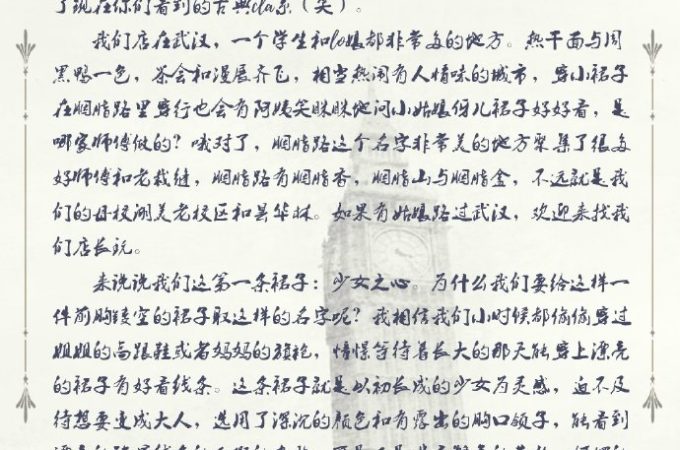 了现在你们看到的古典cla系（笑）。
我们店在武汉，一个学生和lo娘都非常多的地方。热干面与周
黑鸭一色，茶会和漫展齐飞，相当热闹有人情味的城市，穿小裙子
在胭脂路里穿行也会有阿姨笑眯眯地问小姑娘侬儿裙子好好看，是
哪家师傅做的？哦对了，胭脂路这个名字非常美的地方聚集了很多
好师傅和老裁缝，胭脂路有胭脂香，胭脂山与胭脂金，不远就是我
们的母校湖美老校区和昙华林。如果有姑娘路过武汉，欢迎来找我
们店长玩。
来说说我们这第一条裙子：少女之心。为什么我们要给这样一
件前胸镂空的裙子取这样的名字呢？我相信我们小时候都偷偷穿过
姐姐的高跟鞋或者妈妈的旗袍，憧憬等待着长大的那天能穿上漂亮
的裙子有好看线条。这条裙子就是以初长成的少女为灵感，迫不及
待想要变成大人，选用了深沉的颜色和有露出的胸口领子，能看到